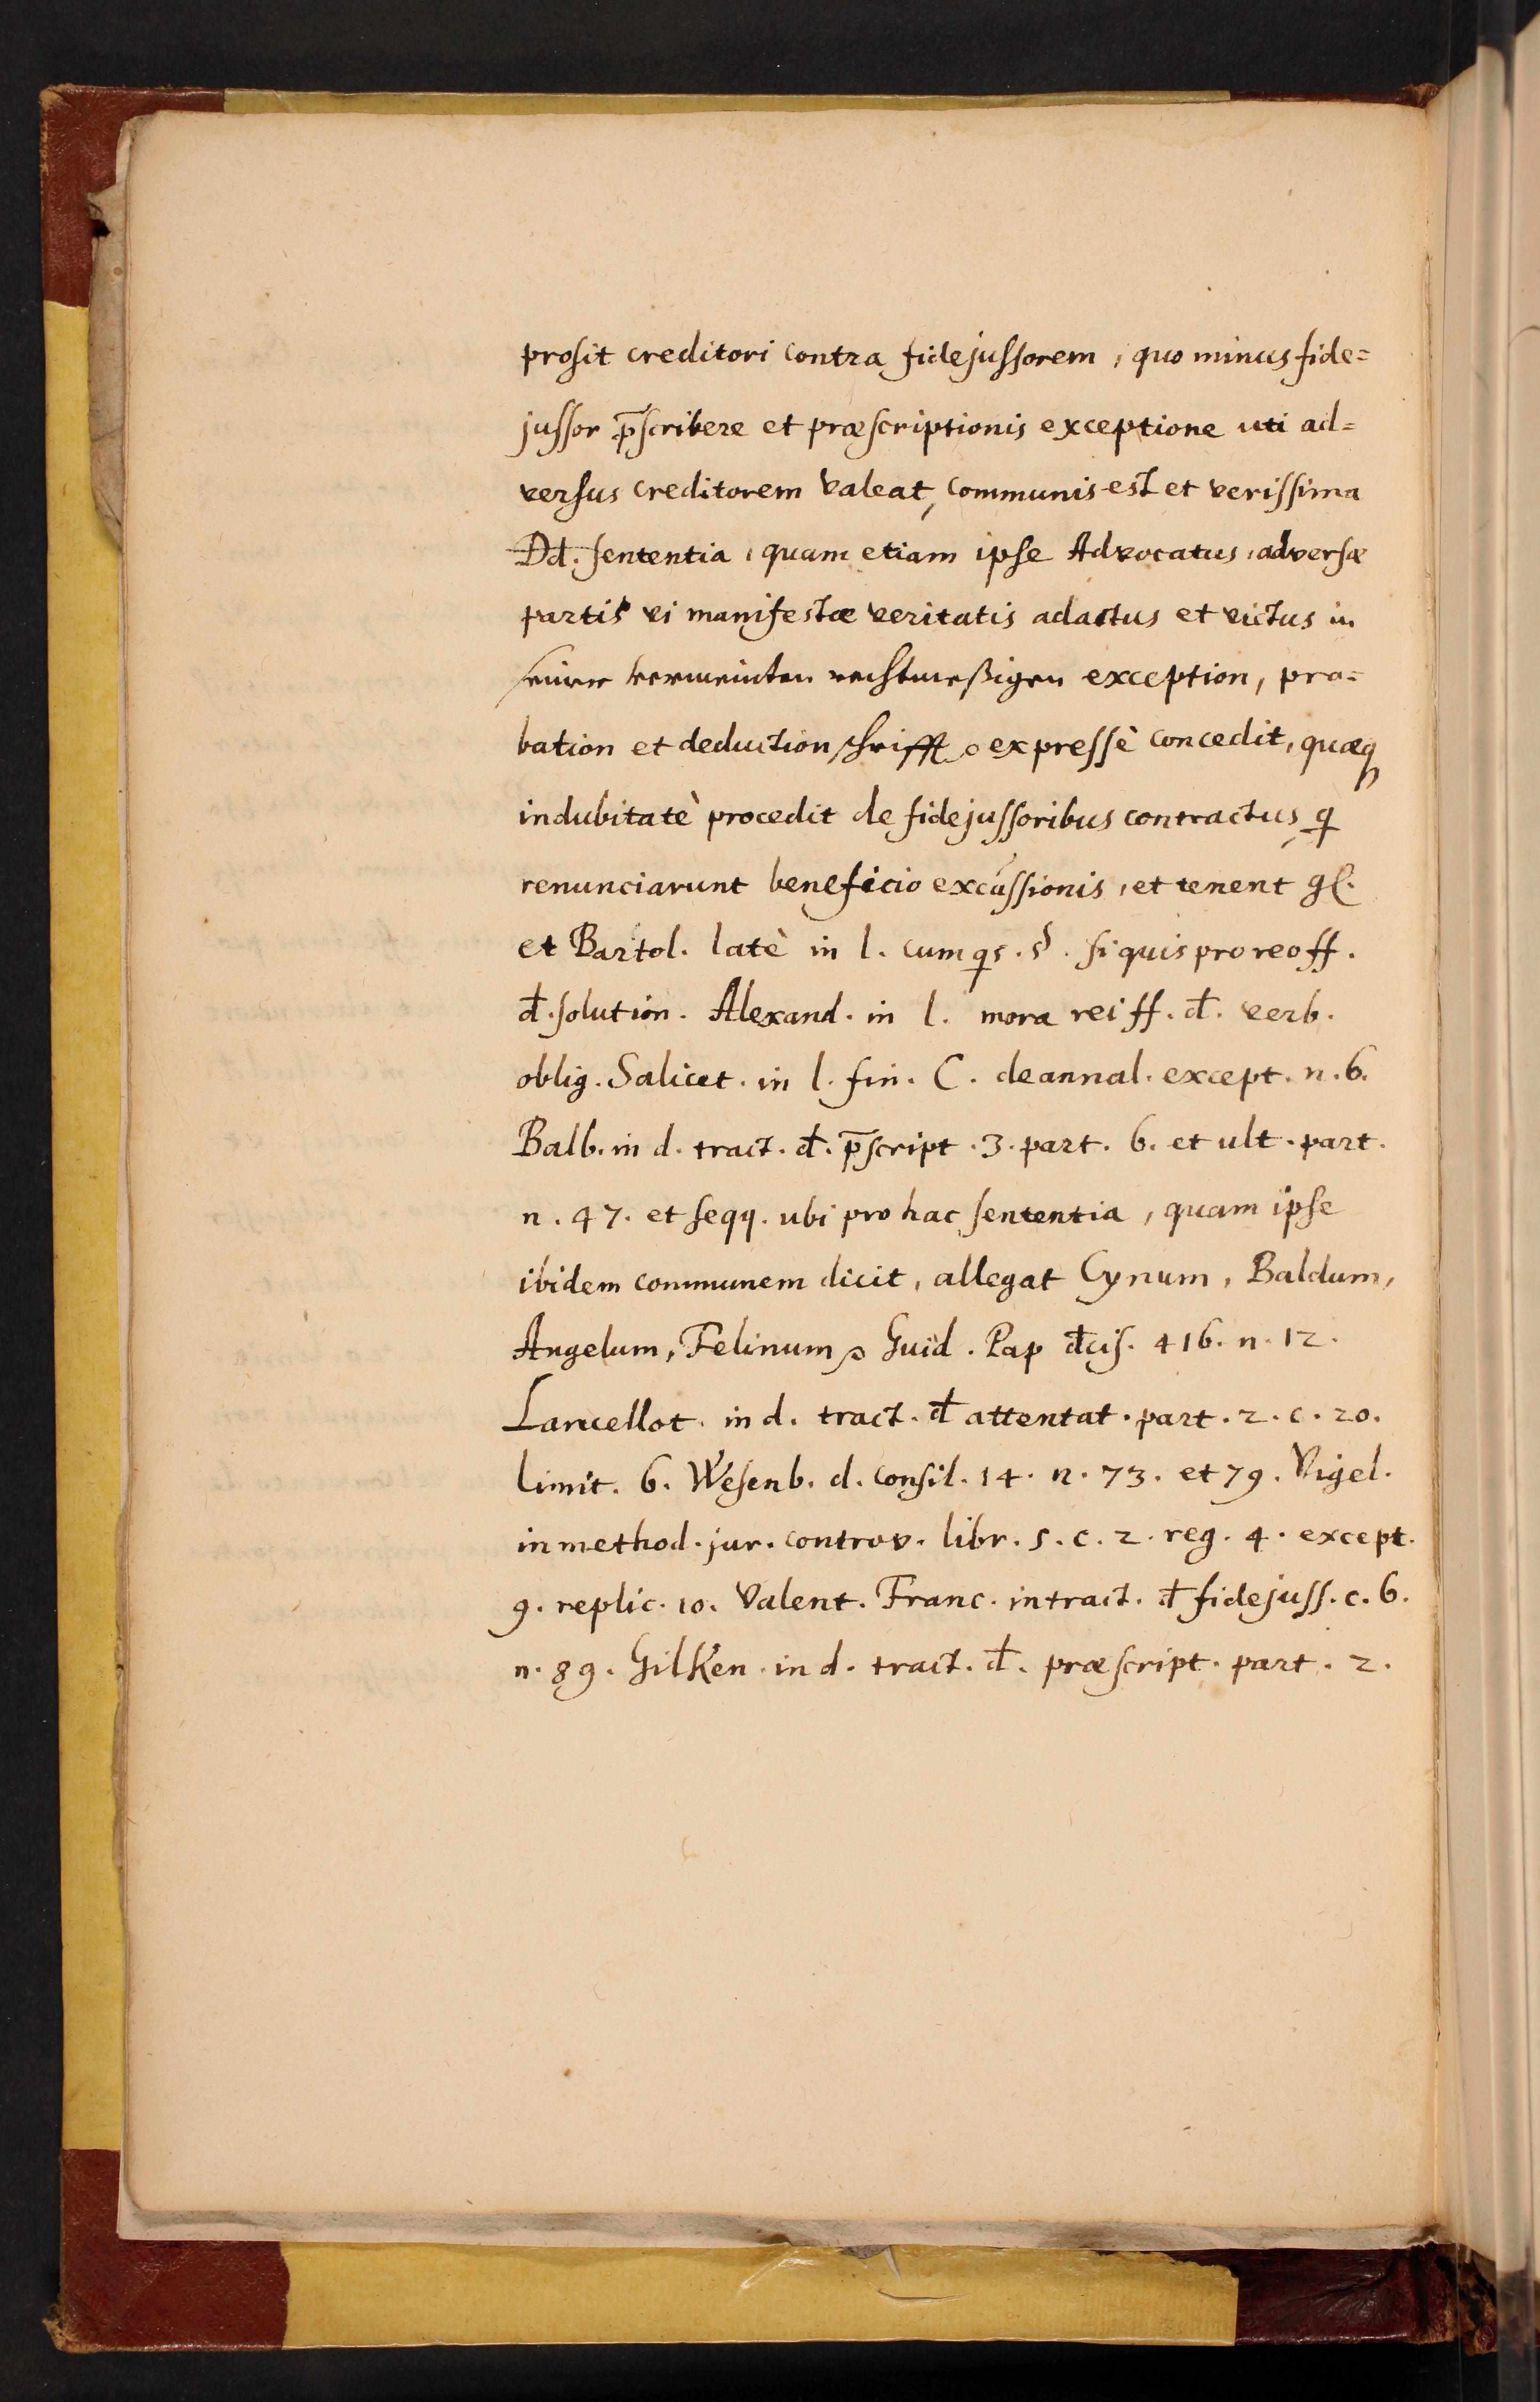 proſit creditori contra fidejuſsorem, quo minus fide=
juſsor p̄ſcribere et præſcriptionis exceptione uti ad=
verſus creditorem valeat, communis est et veriſsima
Dd. ſententia, quam etiam ipſe Advocatus adverſæ
partis vi manifestæ veritatis adactus et victus in
ſeiner vermeinten rechtmeßigen exception, pro=
bation et deduction ſchrifft expreſsè concedit, quæq
indubitatè procedit de fidejuſsoribus contractus, q
renunciarunt beneficio excuſsionis, et tenent gl.
et Bartol. latè in l. cum qs. §. ſi quis pro reo ff.
đ. ſolution. Alexand. in l. mora rei ff. đ. verb.
oblig. Salicet. in l. fin. C. de annal. except. n. 6.
Balb. in d. tract. đ. p̄ſcript. 3. part. 6. et ult. part.
n. 47. et ſeqq. ubi pro hac ſententia, quam ipſe
ibidem communem dicit, allegat Cynum, Baldum,
Angelum, Felinum Guid. Pap đciſ. 416. n. 12.
Lancellot. in d. tract. đ attentat. part. 2. c. 20.
limit. 6. Weſenb. d. conſil. 14. n. 73. et 79. Vigel.
in method. jur. controv. libr. 5. c. 2. reg. 4. except.
9. replic. 10. Valent. Franc. in tract. đ fidejuſſ. c. 6.
n. 89. Gilken. in d. tract. đ. præſcript. part. 2.